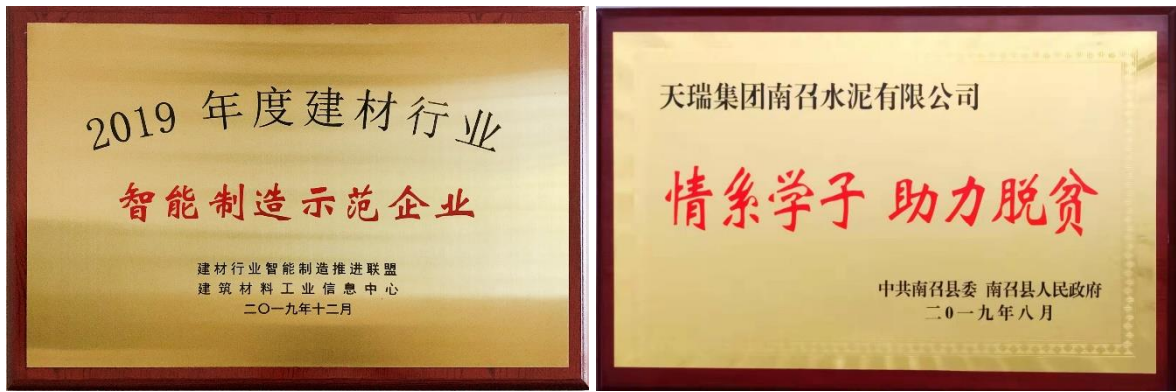 2019 年度建材行业
智能制造示范企业
建材行业智能制造推进联盟
建筑材料工业信息中心
二〇一九年十二月
天瑞集团南召水泥有限公司
情系学子 助力脱贫
中共南召县委 南召县人民政府
二0一九年八月